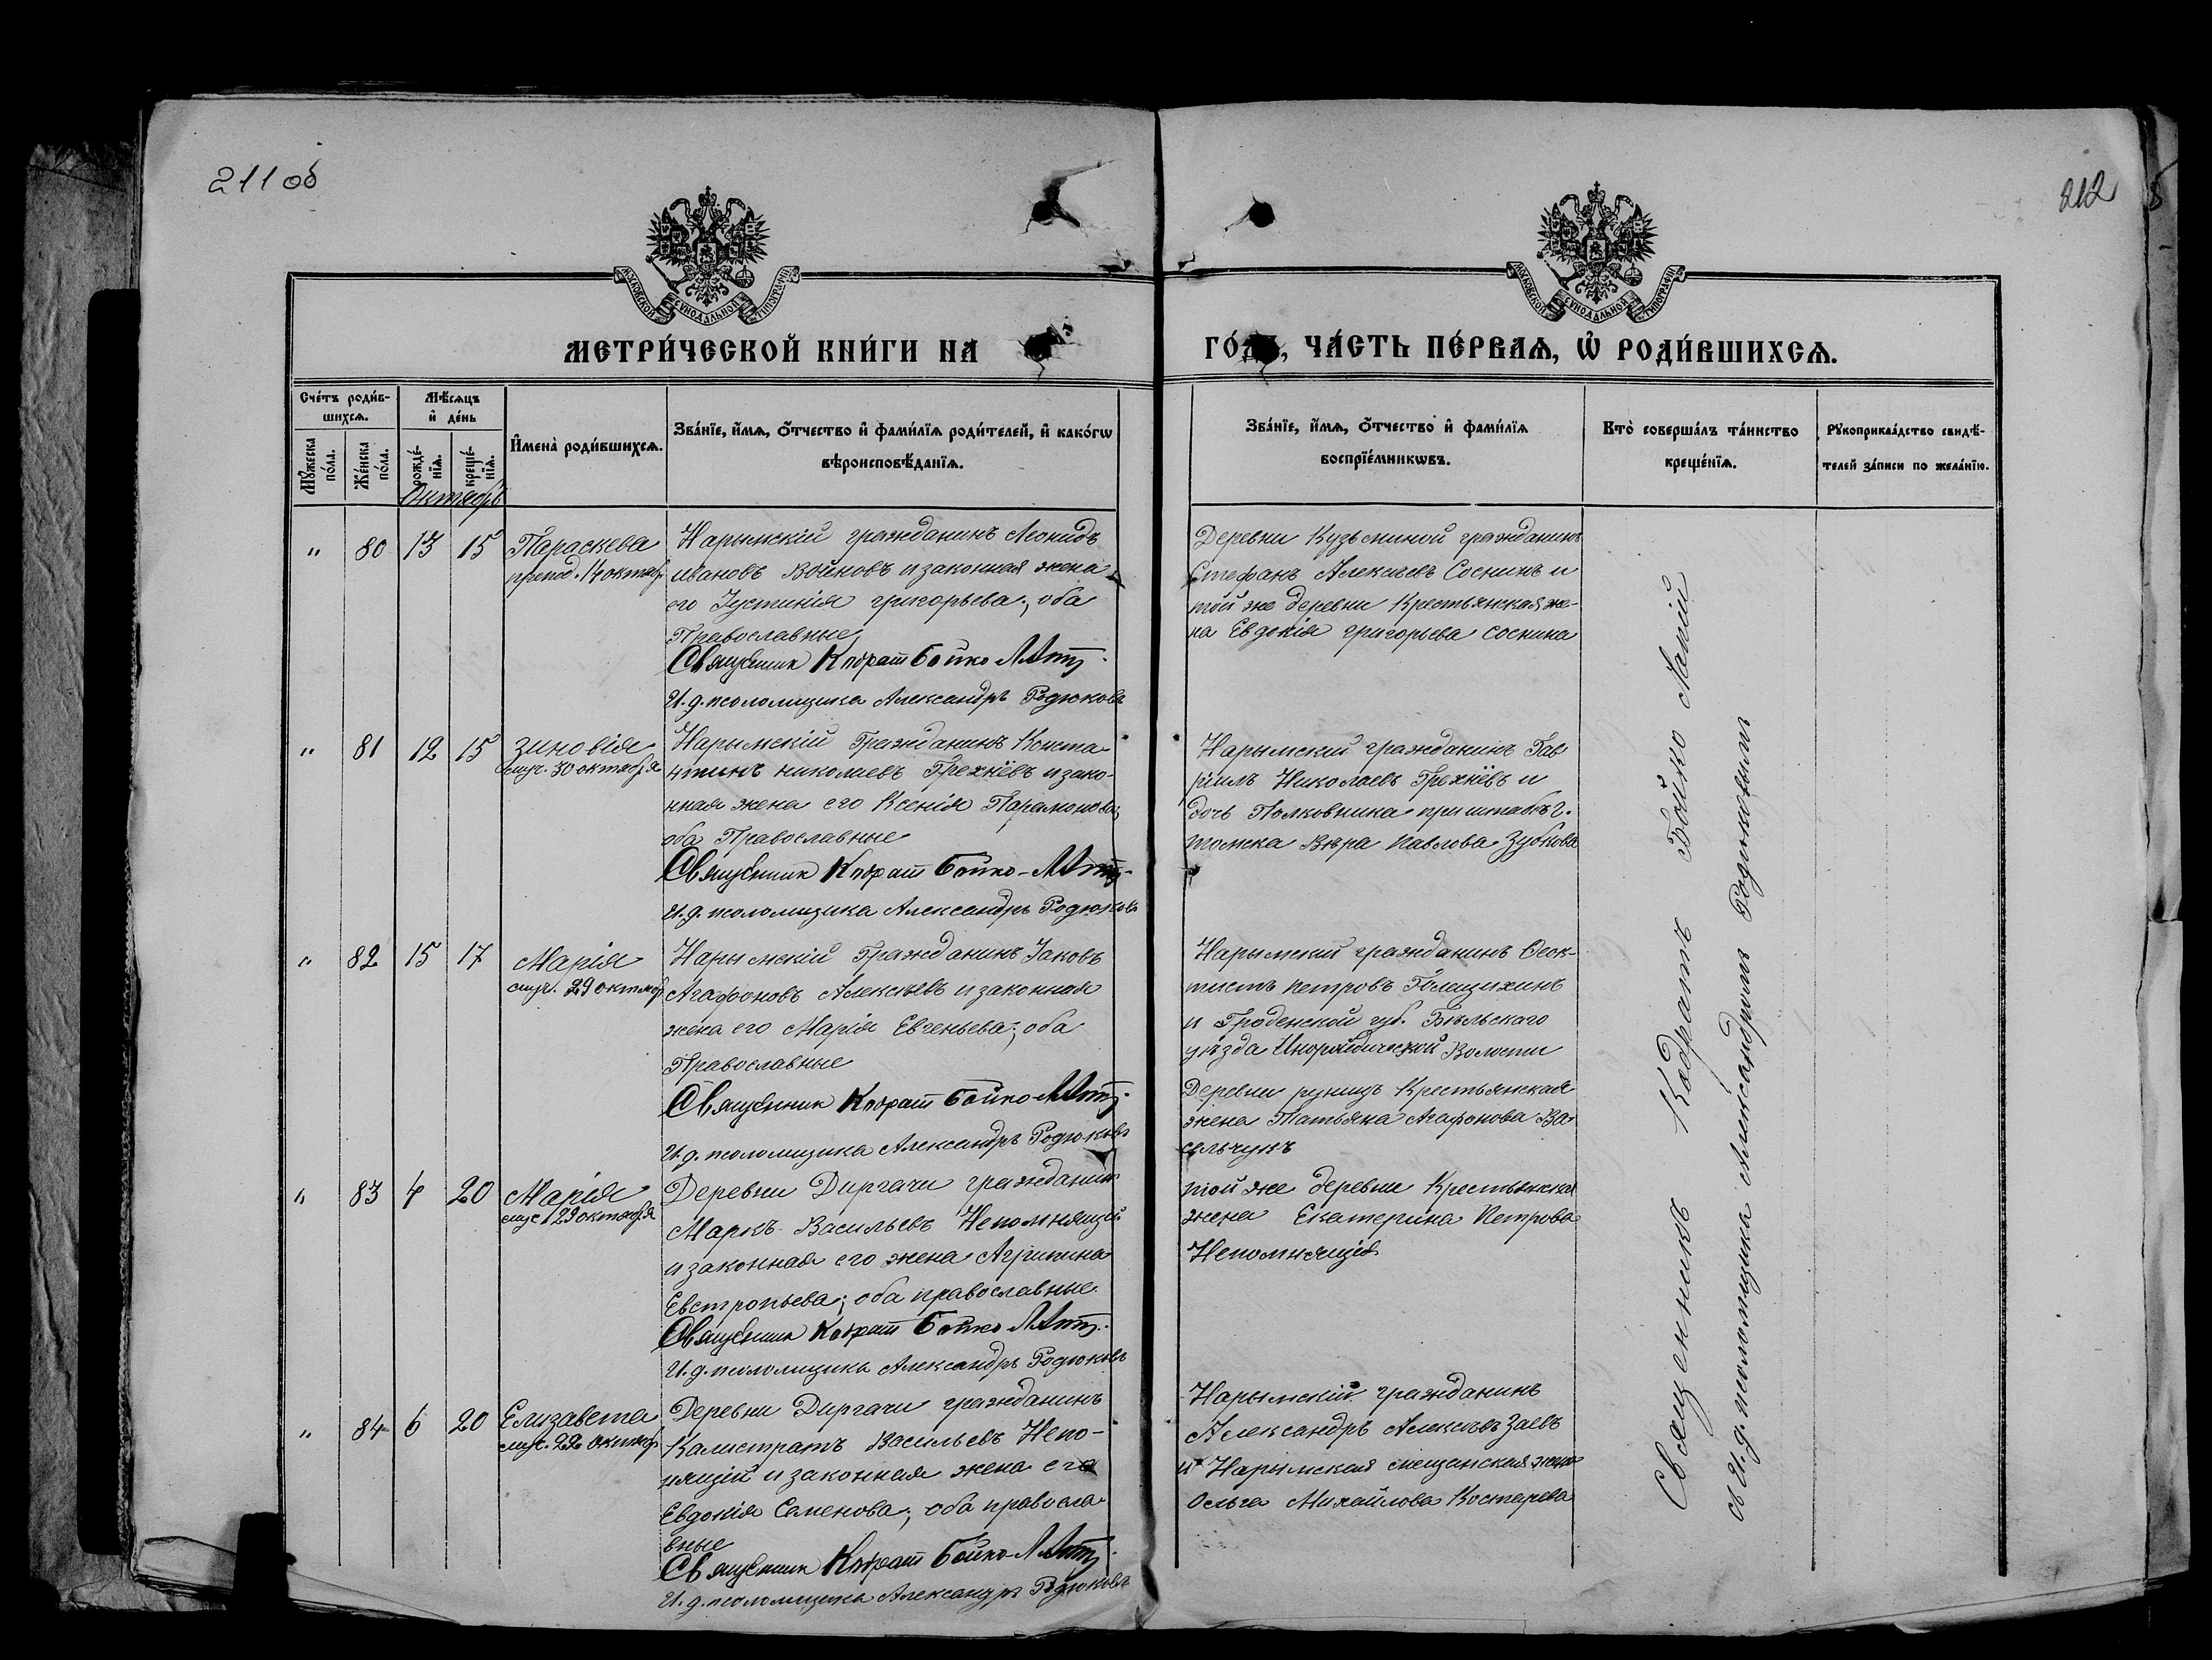 211 об
212
МОСКОВСКОЙ СѴНОДАЛЬНОЙ ТИПОГРАФІИ
МОСКОВСКОЙ СѴНОДАЛЬНОЙ ТИПОГРАФІИ
МЕТРИ́ЧЕСКОЙ КНИ́ГИ НА
ГО́ДЪ, ЧА́СТЬ ПЕ́РВАѦ, Ѡ҆ РОДИ́ВШИХСѦ.
Сче́тъ роди́в-
шихсѧ.
Мꙋ́жеска
по́ла.
Же́нска
по́ла.
Мѣ́сѧцъ
и҆ де́нь
рожде́-
нїѧ.
креще́-
нїѧ.
Октябрь
И҆мена̀ роди́вшихсѧ.
Зва́нїе, и҆́мѧ, ѻ҆́тчество и҆ фами́лїѧ роди́телей, и҆ како́гѡ
вѣроисповѣ́данїѧ.
Зва́нїе, и҆́мѧ, ѻ҆́тчество и҆ фами́лїѧ
воспрїе́мникѡвъ.
Кто̀ соверша́лъ та́инство
креще́нїѧ.
Рꙋкоприкла́дство свидѣ́-
телей за́писи по жела́нїю.
" 80 13 15
Параскева
препод. 14 октяб.
Нарымскій гражданинъ Леонидъ
ивановъ Войновъ и законная жена
его Іустинія григорьева; оба
Православные
Священник Кодрат Бойко-Лапій
И. д. псаломщика Александръ Родюковъ
Деревни Кузьминой гражданинъ
Стефанъ Алексѣевъ Соснинъ и
той же деревни Крестьянская же-
на Евдокія григорьева соснина
" 81 12 15
Зиновія
муч. 30 октября
Нарымскій Гражданинъ Конста-
нтинъ николаевъ Грехнёвъ и зако-
нная жена его Ксенія Парамонова;
оба Православные
Священник Кодрат Бойко-Лапій
И. д. псаломщика Александръ Родюковъ
Нарымский гражданинъ Гав
ріилъ Николаевъ Грехнёвъ и
дочь Полковника при штабѣ г.
томска Вѣра павлова Зубкова
" 82 15 17
Марія
муч. 29 октяб
Нарымскій Гражданинъ Іаковъ
Агафоновъ Алексѣевъ и законная
жена его Марія Евгеньева; оба
Православные
Священник Кодрат Бойко-Лапій
И. д. псаломщика Александръ Родюковъ
Нарымский гражданинъ Ѳеок-
тистъ петровъ Голещихинъ
и Гроденской губ. Бѣльского
уѣзда Волости
Деревни Крестьянская
жена Татьяна Агафонова Ва-
сельчукъ
" 83 4 20
Марія
муч 29 октября
Деревни Диргачи гражданин
Маркъ Васильевъ Непомнящій
и законная его жена Агрипина
Евстропьева; оба православные
Священник Кодрат Бойко Лапій
И. д. псаломщика Александръ Родюковъ
той же деревни Крестьянска
жена Екатерина Петрова
Непомнящея
" 84 6 20
Елизавета
муч. 22 октяб
Деревни Диргачи гражданинъ
Калистратъ Васильевъ Непо-
нящій и законная жена его
Евдокія Семенова; оба правосла-
вные
Священник Кодрат Бойко-Лапій
И. д. псаломщика Александръ Родюковъ
Нарымскій гражданинъ
Александръ Алексѣевъ Заевъ
и Нарымская мещанская жена
Ольга Михайлова Костарева
Священникъ Кодратъ Бойко Лапій
съ И. д. псаломщика Александромъ Родюковымъ